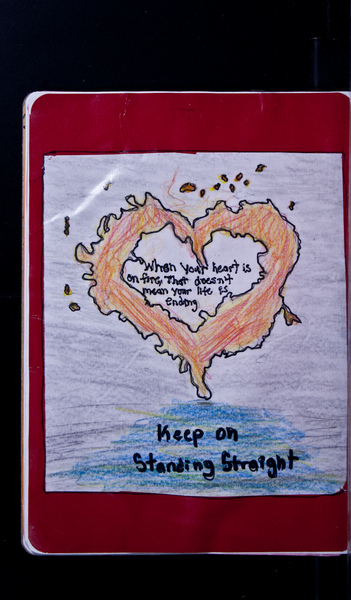 When your heart is
on fire, That doesn't
mean your life is
Ending
Keep on
Standing Straight